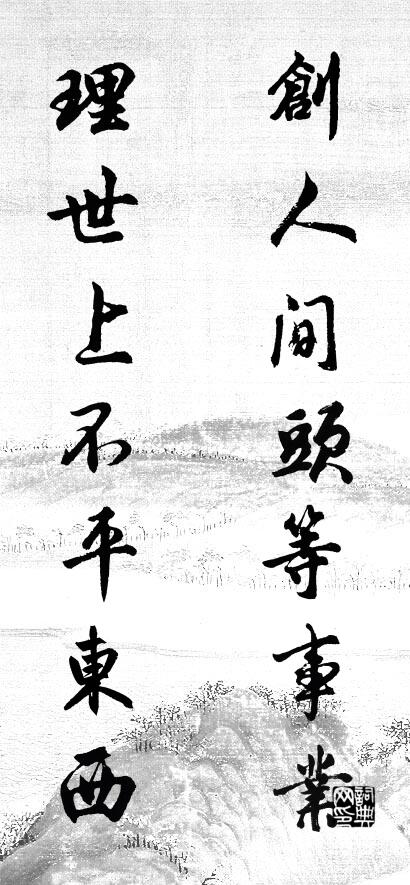 創人间頭等事業
理世上不平東西
詞典网印